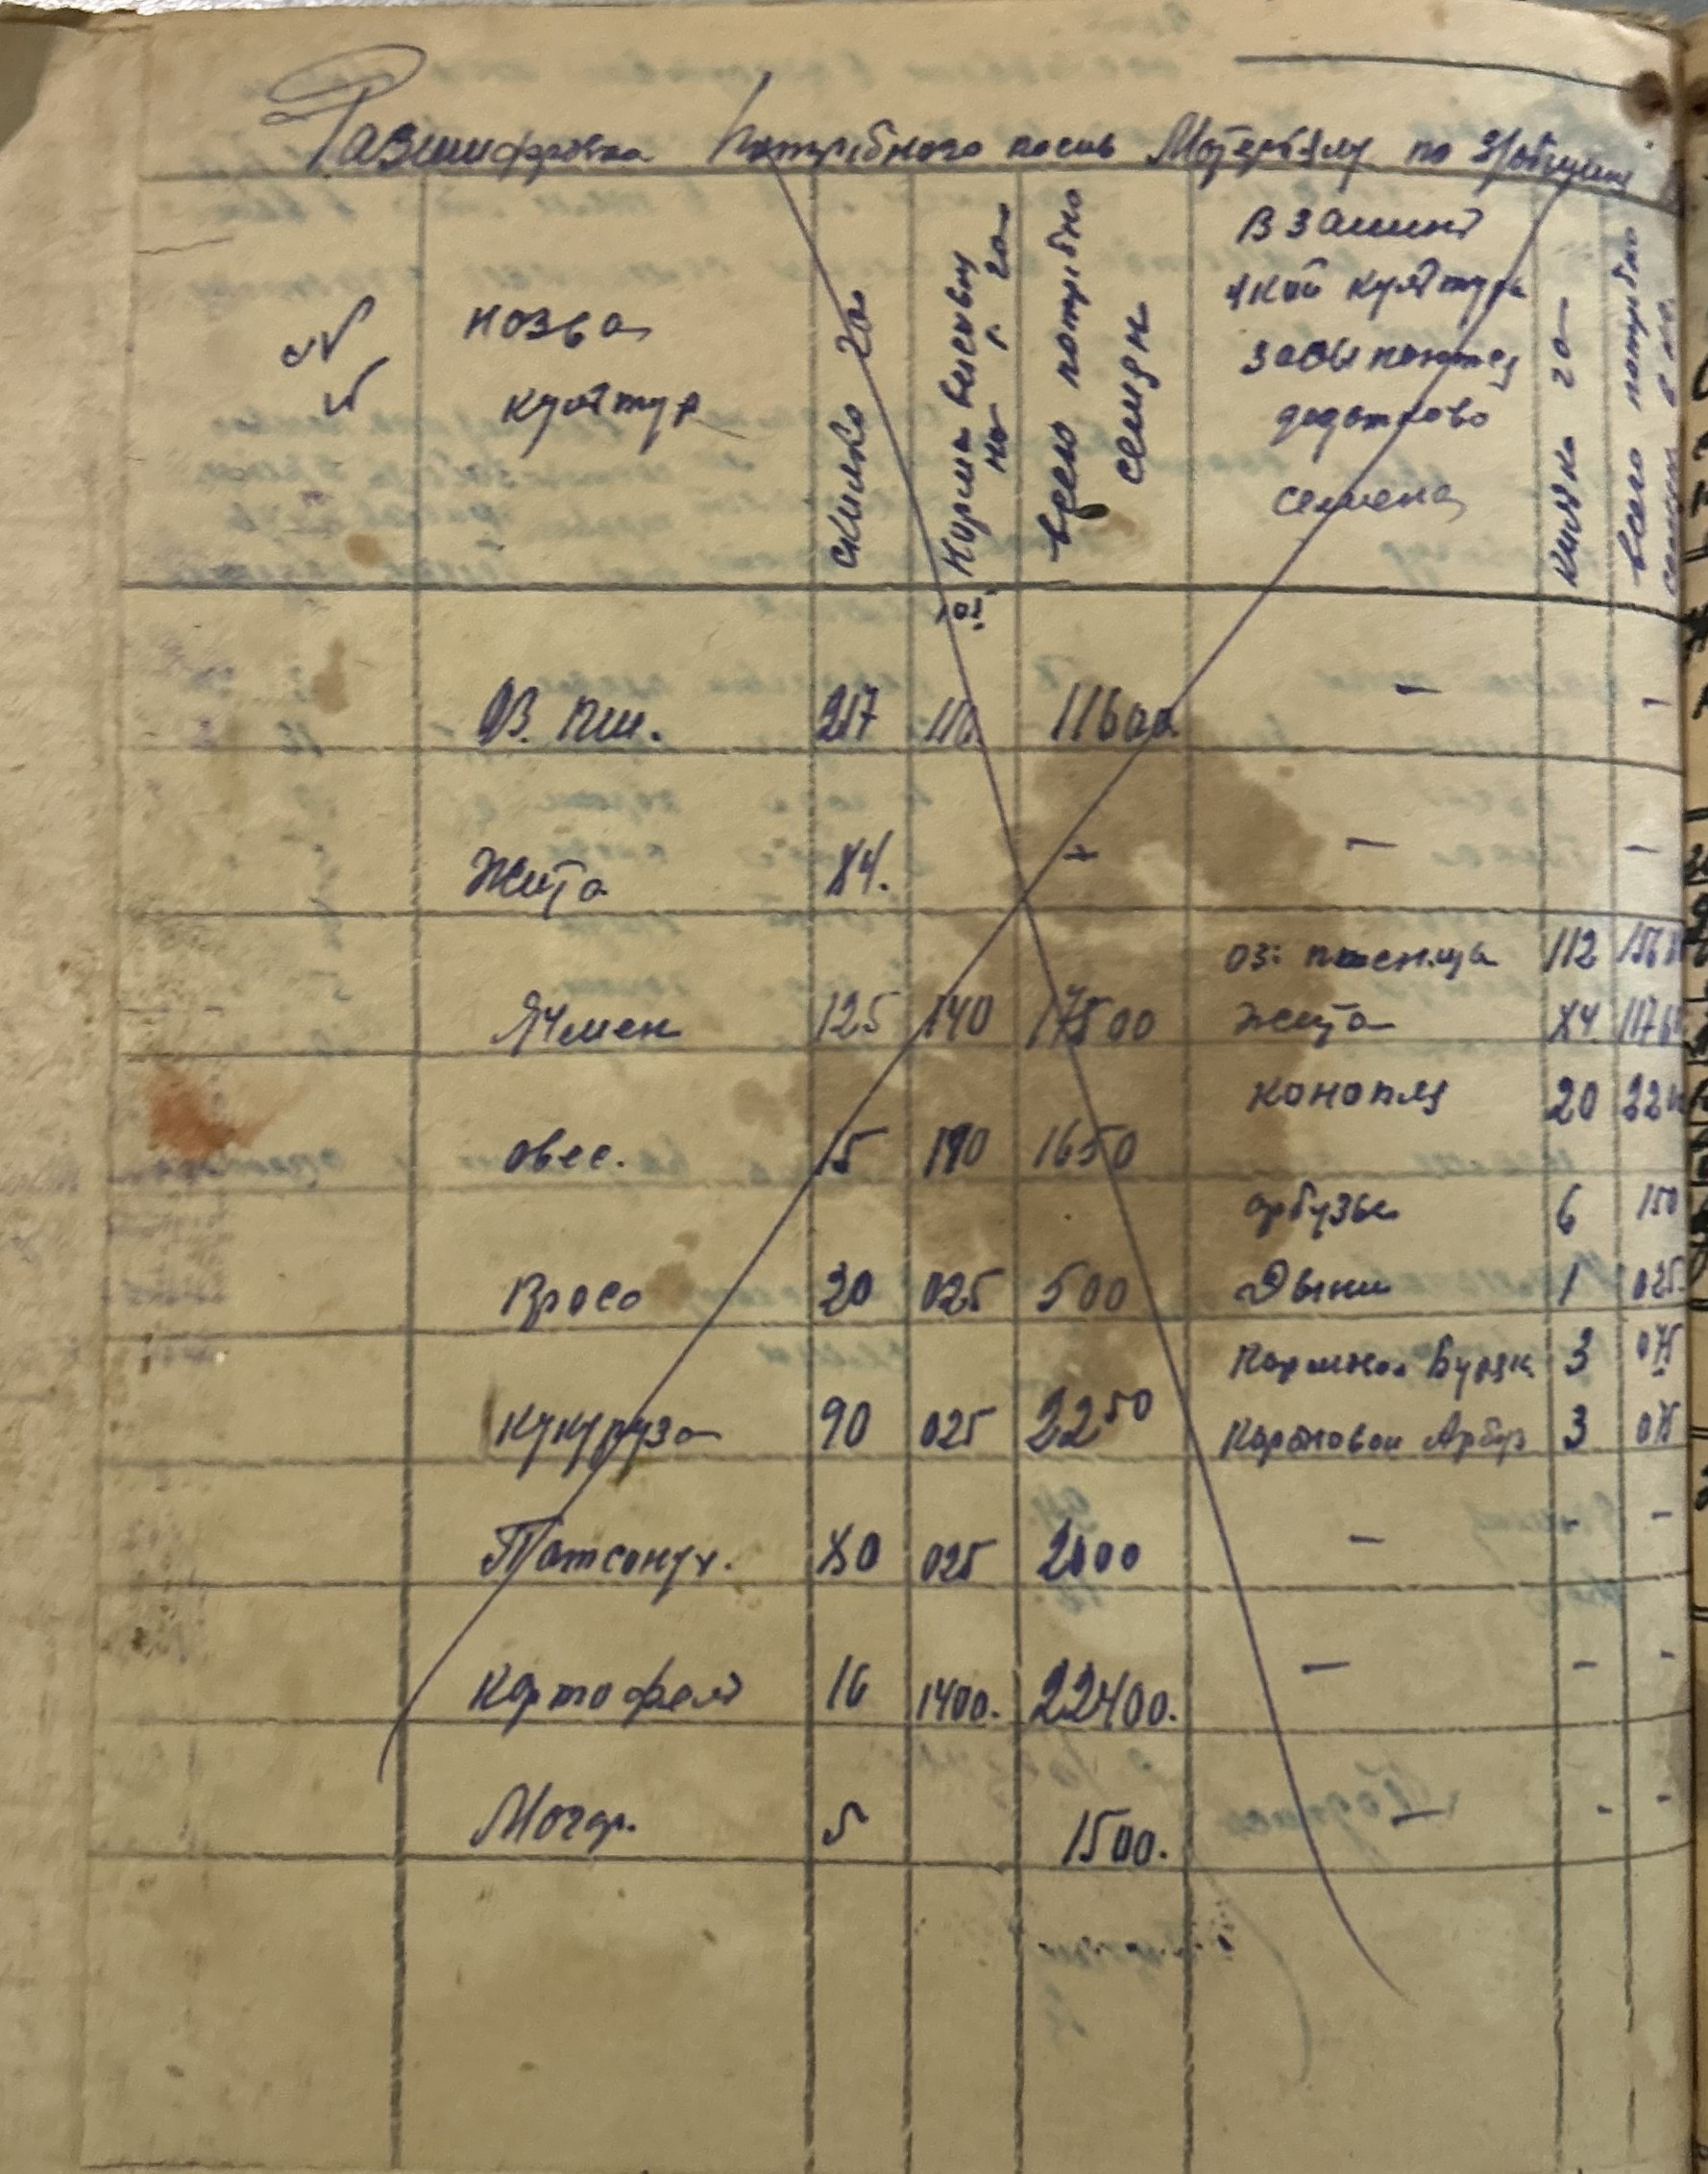 Разшифровка потрібного посив Матерьялу по
№ №
назва
культур
скилько га
Норма висиву на 1 га
всего потрібно семян
В замині
якой культури
засыпаются
додатково
семена
килько га
всего потрібно
оз. пш. 217 110 11600
Жита 84. – –
оз: пшеница 112
Ячмен 125 140 17500 жита 84
конопля 20
овес. 15 110 1650
арбузы 6 150
Просо 20 025 500 Дыни 1 025
Кормовой Буряк 3 075
Кукуруза 90 025 2250 Кормовой Арбуз 3 075
Патсонух. 80 025 2000 – – –
Картофель 16 1400. 22400. – – –
Могар. 5 1500. – - -